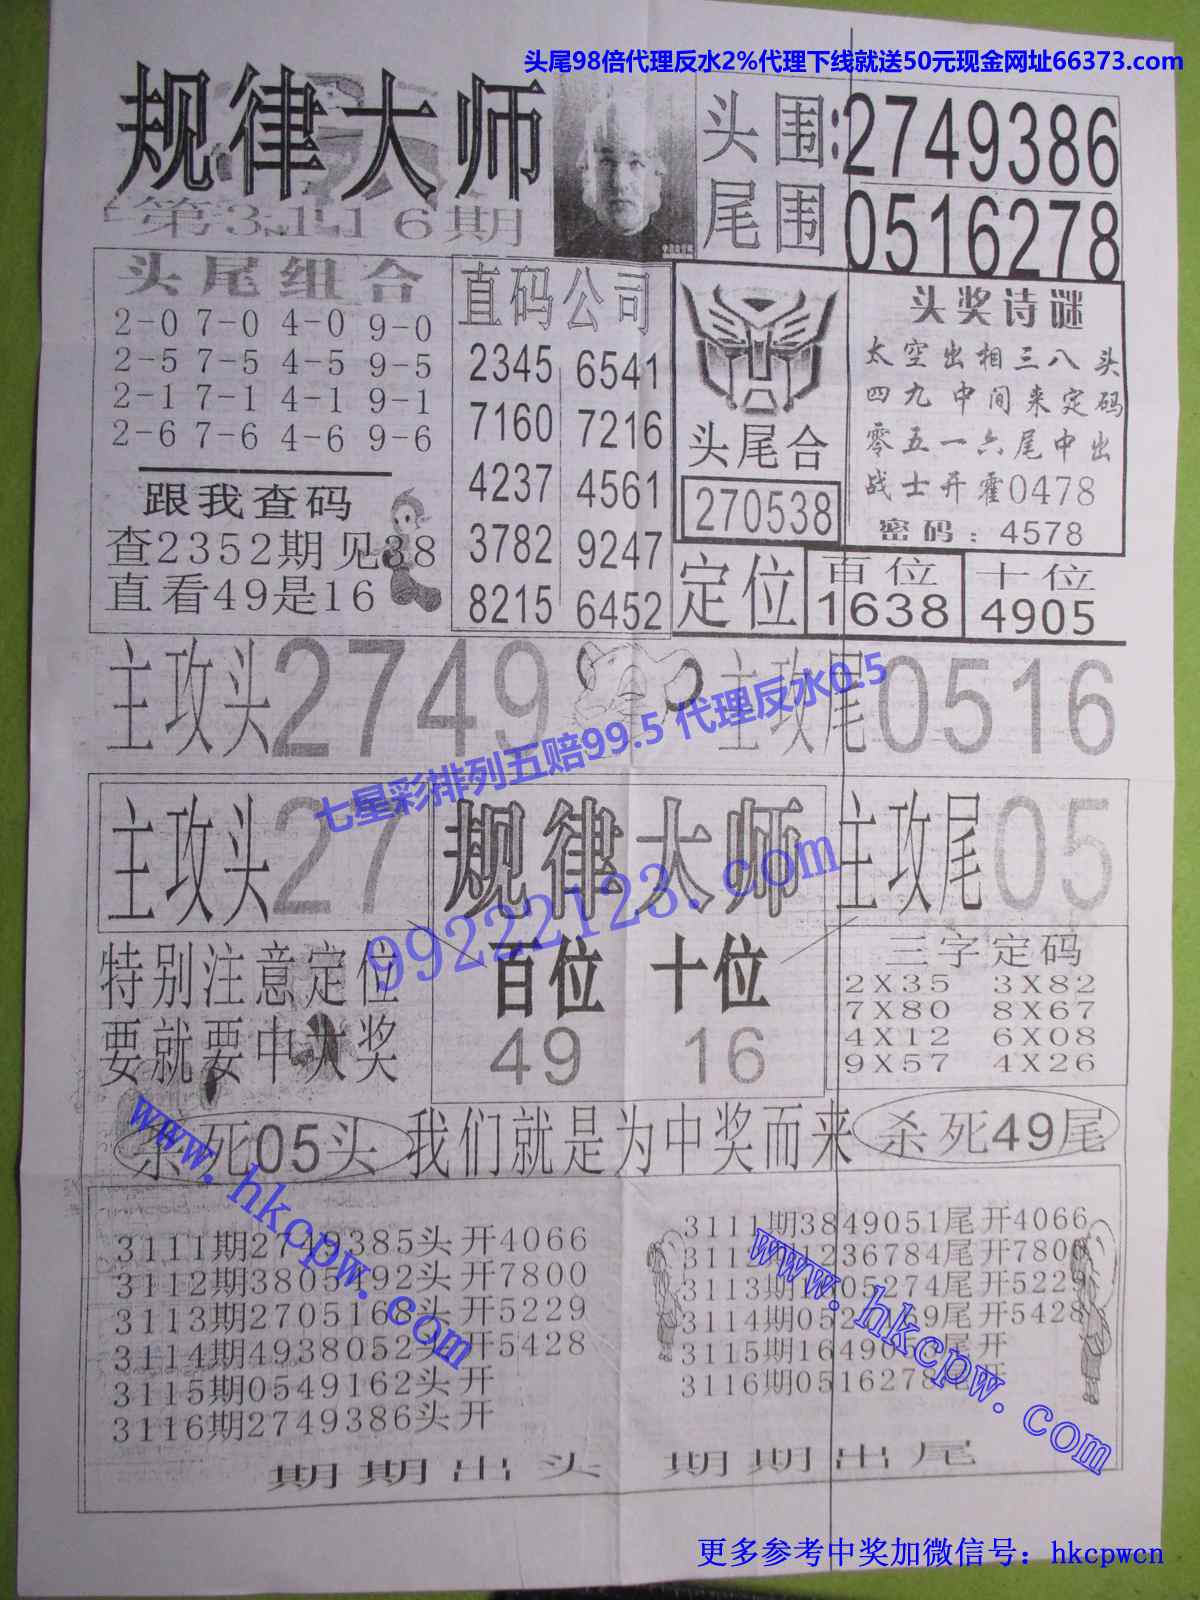 头尾98倍代理反水2%代理下线就送50元现金网址66373.com
规律大师
第3116期
头围:2749386
尾围 0516278
头尾组合
2-0 7-0 4-0 9-0
2-5 7-5 4-5 9-5
2-1 7-1 4-1 9-1
2-6 7-6 4-6 9-6
跟我查码
查2352期见38
直看49是16
直码公司
2345 6541
7160 7216
4237 4561
3782 9247
8215 6452
头尾合
270538
头奖诗谜
太空出相三八头
四九中间来定码
零五一六尾中出
战士开霍0478
密码:4578
定位
百位
1638
十位
4905
主攻头2749
主攻尾0516
七星彩排列五赔99.5 代理反水0.5
主攻头27
规律大师
主攻尾05
99222123.com
特别注意定位
要就要中大奖
百位 十位
49 16
三字定码
2X35 3X82
7X80 8X67
4X12 6X08
9X57 4X26
杀死05头
我们就是为中奖而来
杀死49尾
www.hkcpw.com
3111期2749385头开4066
3112期3805492头开7800
3113期2705168头开5229
3114期4938052头开5428
3115期0549162头开
3116期2749386头开
3111期3849051尾开4066
1236784尾开7800
3113期 05274尾开5229
3114期052 9尾开5428
3115期16490 尾开
3116期0516278尾开
www.hkcpw.com
期期出头 期期出尾
更多参考中奖加微信号：hkcpwcn